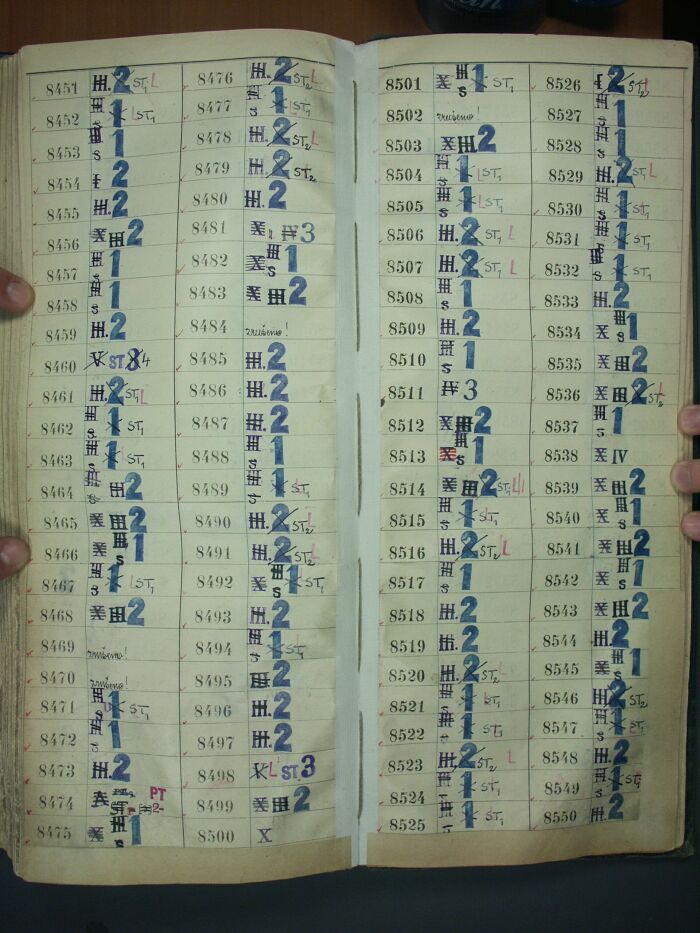 8451 III. 2 ST1 L
8452 III s 1 L ST1
8453 III s 1
8454 I 2
8455 III. 2
8456 X III 2
8457 III s 1
8458 III s 1
8459 III. 2
8460 V ST 3 4
8461 III. 2 ST1 L
8462 III s 1 ST1
8463 III s 1 L ST1
8464 III s III 2
8465 X III 2
8466 X III s 1
8467 III s 1 L ST1
8468 X III 2
8469 zrušeno!
8470 zrušeno!
8471 III s 1 ST1
8472 III s 1
8473 III. 2
8474 PT
8475 X III s 1
8476 III. 2 ST2 L
8477 III s 1 L ST1
8478 III. 2 ST2 L
8479 III. 2 ST2
8480 III. 2
8481 X IV 3
8482 X III s 1
8483 X III 2
8484 zrušeno!
8485 III. 2
8486 III. 2
8487 III. 2
8488 III s 1
8489 III s 1 ST1
8490 III. 2 ST2 L
8491 III. 2 ST2 L
8492 X III s 1 ST1
8493 III. 2
8494 III s 1 ST1
8495 III 2
8496 III. 2
8497 III. 2
8498 V L ST 3
8499 X III 2
8500 X
8501 X III s 1 ST1
8502 zrušeno!
8503 X III 2
8504 III s 1 L ST1
8505 III s 1 L ST1
8506 III. 2 ST1 L
8507 III. 2 ST1 L
8508 III s 1
8509 III. 2
8510 III s 1
8511 IV 3
8512 X III 2
8513 X III s 1
8514 X III 2 ST1 L
8515 III s 1 ST1
8516 III. 2 ST2 L
8517 III s 1
8518 III. 2
8519 III. 2
8520 III. 2 ST2 L
8521 III 1 ST1
8522 III s 1 ST1
8523 III. 2 ST2 L
8524 III 1 ST1
8525 III 1 ST1
8526 I 2 ST2 L
8527 III s 1
8528 III s 1
8529 III. 2 ST1 L
8530 III s 1 ST1
8531 III s 1 ST1
8532 III s 1 ST1
8533 III. 2
8534 X III s 1
8535 X III 2
8536 X III 2 ST2 L
8537 III s 1
8538 X IV
8539 X III 2
8540 X III s 1
8541 X III 2
8542 X III s 1
8543 X III 2
8544 III. 2
8545 X III s 1
8546 III. 2 ST2
8547 III s 1 ST1
8548 III. 2
8549 III s 1 ST1
8550 III. 2